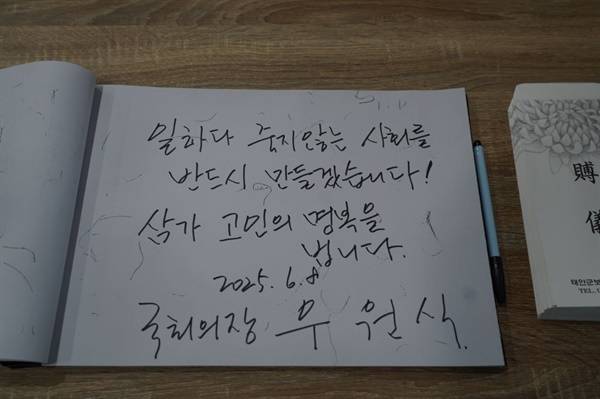 일하다 죽지않는 사회를
반드시 만들겠습니다!
삼가 고인의 명복을
빕니다.
2025. 6. 8
국회의장 우 원 식
賻
儀
태안군보
TEL.